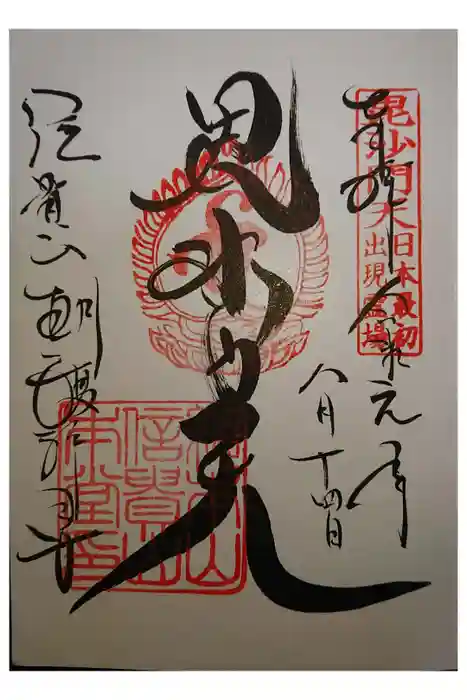 毘沙門天
日本最初
出現霊場
奉拝 令和元年
八月十四日
毘沙門天
信貴山朝護孫子寺
本山
信貴山
本堂印